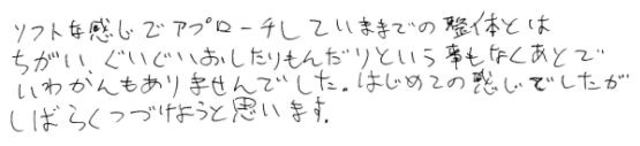 ソフトな感じでアプローチしていままでの整体とは
ちがい、ぐいぐいおしたりもんだりという事もなくあとで
いわかんもありませんでした。はじめての感じでしたが
しばらくつづけようと思います。